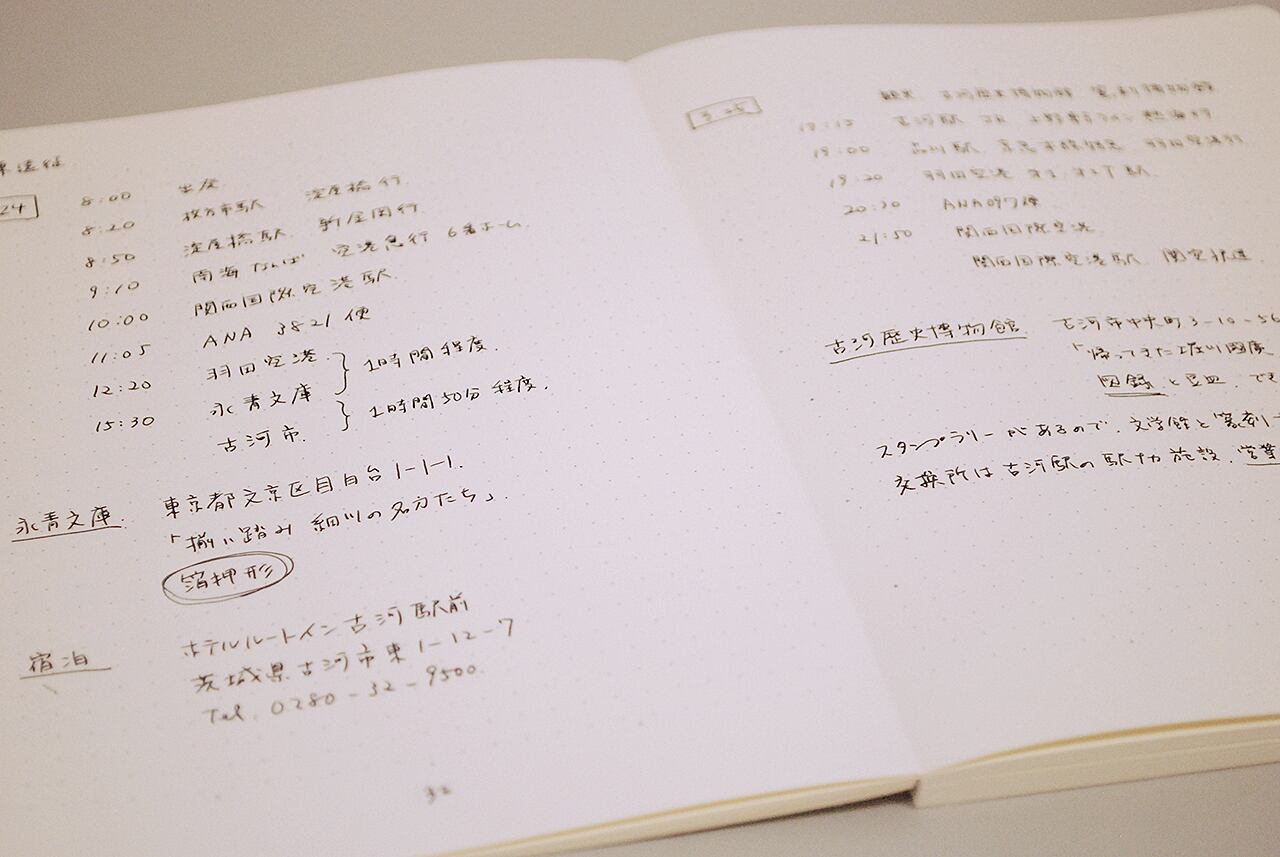 東遠征
24
8:00 出発
8:20 枚方市駅 淀屋橋行
8:50 淀屋橋駅 新金岡行
9:10 南海なんば 空港急行 6番ホーム
10:00 関西国際空港駅
11:05 ANA 3821便
12:20 羽田空港
15:30 永青文庫
古河市
1時間程度
1時間50分程度
永青文庫 東京都文京区目白台1-1-1
「揃い踏み 細川の名刀たち」
箔押形
宿泊 ホテルルートイン古河駅前
茨城県古河市東1-12-7
Tel. 0280-32-9500
32
観光 古河歴史博物館 篆刻博物館
古河駅 JR 上野東京ライン 熱海行
19:00 品川駅 京急本線
19:20 羽田空港
20:30 ANA097便
21:50 関西国際空港
関西国際空港駅 関空快速
古河歴史博物館 古河市中央町3-10-56
「帰ってきた
図録と豆皿、でき
スタンプラリーがあるので、文学館と篆刻
交換所は古河駅の駅中施設、営業